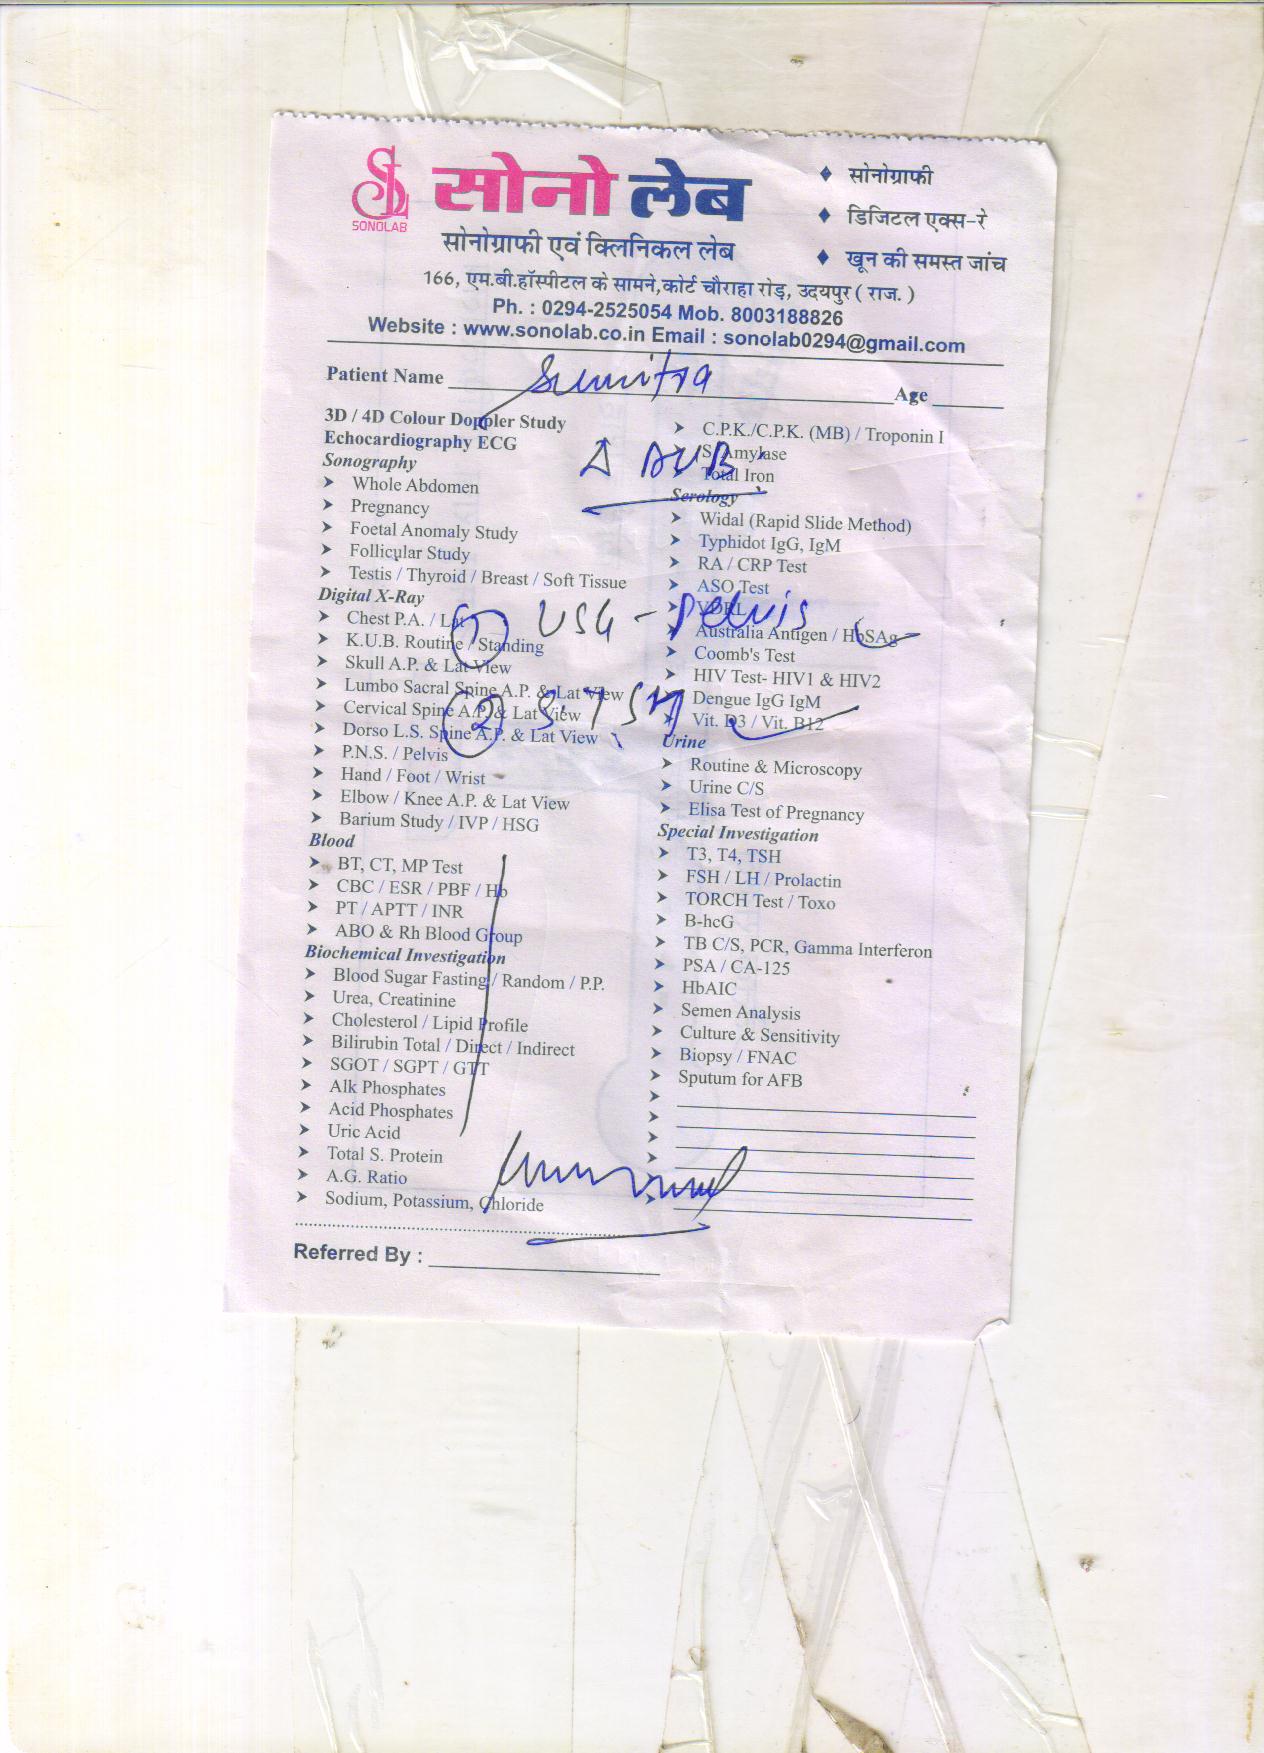 सोनो लेब
SONOLAB
सोनोग्राफी एवं क्लिनिकल लेब
♦ सोनोग्राफी
♦ डिजिटल एक्स-रे
♦ खून की समस्त जांच
166, एम.बी.हॉस्पीटल के सामने,कोर्ट चौराहा रोड़, उदयपुर ( राज. )
Ph. : 0294-2525054 Mob. 8003188826
Website : www.sonolab.co.in Email : sonolab0294@gmail.com
Patient Name Sumitra Age
3D / 4D Colour Doppler Study
Echocardiography ECG
Sonography
➤ Whole Abdomen
➤ Pregnancy
➤ Foetal Anomaly Study
➤ Follicular Study
➤ Testis / Thyroid / Breast / Soft Tissue
Digital X-Ray
➤ Chest P.A. / Lat
➤ K.U.B. Routine / Standing
➤ Skull A.P. & Lat View
➤ Lumbo Sacral Spine A.P. & Lat View
➤ Cervical Spine A.P. & Lat View
➤ Dorso L.S. Spine A.P. & Lat View
➤ P.N.S. / Pelvis
➤ Hand / Foot / Wrist
➤ Elbow / Knee A.P. & Lat View
➤ Barium Study / IVP / HSG
Blood
➤ BT, CT, MP Test
➤ CBC / ESR / PBF / Hb
➤ PT / APTT / INR
➤ ABO & Rh Blood Group
Biochemical Investigation
➤ Blood Sugar Fasting / Random / P.P.
➤ Urea, Creatinine
➤ Cholesterol / Lipid Profile
➤ Bilirubin Total / Direct / Indirect
➤ SGOT / SGPT / GTT
➤ Alk Phosphates
➤ Acid Phosphates
➤ Uric Acid
➤ Total S. Protein
➤ A.G. Ratio
➤ Sodium, Potassium, Chloride
➤ C.P.K./C.P.K. (MB) / Troponin I
➤ S. Amylase
➤ Total Iron
Serology
➤ Widal (Rapid Slide Method)
➤ Typhidot IgG, IgM
➤ RA / CRP Test
➤ ASO Test
➤ VDRL
➤ Australia Antigen / HbSAg
➤ Coomb's Test
➤ HIV Test- HIV1 & HIV2
➤ Dengue IgG IgM
➤ Vit. D3 / Vit. B12
Urine
➤ Routine & Microscopy
➤ Urine C/S
➤ Elisa Test of Pregnancy
Special Investigation
➤ T3, T4, TSH
➤ FSH / LH / Prolactin
➤ TORCH Test / Toxo
➤ B-hcG
➤ TB C/S, PCR, Gamma Interferon
➤ PSA / CA-125
➤ HbAIC
➤ Semen Analysis
➤ Culture & Sensitivity
➤ Biopsy / FNAC
➤ Sputum for AFB
Δ AUB
① USG - Pelvis
② S. TSH
Referred By :